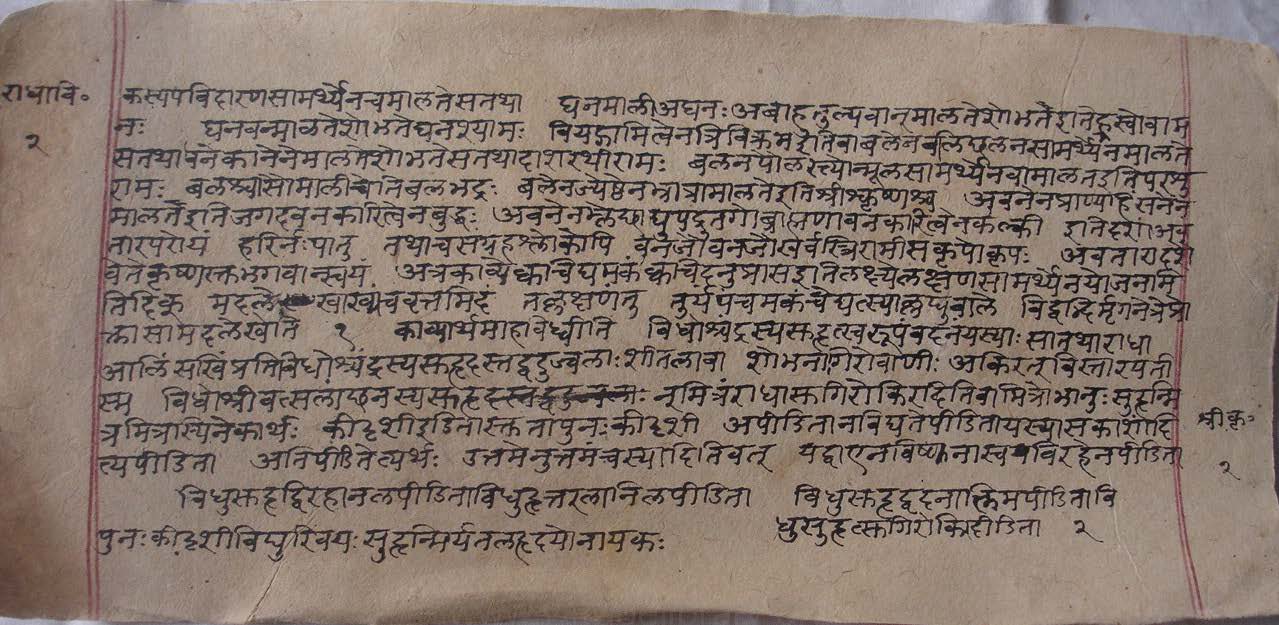 राधावि॰ कस्यपविदारणसामर्थ्येनचमालतेसतथा घनमालीअघनः अबाहतुल्यवानमालतेशोभतेइतिह्रस्वोवाम
२ नः घनवन्मालतेशोभतेघनश्यामः वियद्गामित्वेनत्रिविक्रमइतिवा बलेनबलिछलनसामर्थ्येनमालते
सतथा वनेकाननेमालतेशोभतेसतथादाशरथीरामः बलनपालदैत्योन्मूलसामर्थ्येनवामालतइतिपरशु
रामः बलश्चासौमालीचेतिबलभद्रः बलेनज्येष्ठेनभ्रात्रामालतेइतिश्रीकृष्णश्च अवनेनप्राण्यहिंसनेन
मालतेइतिजगदवनकारित्वेनबुद्धः अवनेनम्लेछाद्युपद्रुतगोब्राह्मणावनकारित्वेनकल्की इतिदशअव
तारपरोयं हरिर्नःपातु तथाचसंग्रहश्लोकोपि वनजौवनजौखर्वस्त्रिरामीसकृपोकृपः अवतारादश
वैतेकृष्णस्तुभगवान्स्वयं अत्रकाव्येक्वचिद्यमकंक्वचिदनुप्रासइतिलक्ष्यलक्षणसामर्थ्येनयोजनामि
तिदिक् मदले खाख्यंचवृत्तमिदं तल्लक्षणंतु तुर्यपंचमकंचेद्यत्स्याल्लघुबाले विद्वद्भिर्मृगनेत्रेप्रो
क्तासामदलेखेति १ काव्यार्थमाहविध्वीति विधोश्चंद्रस्यसुहृत्स्वरूपंवदनंयस्याः सातथाराधा
आलिंसखिंप्रतिविधोश्चंद्रस्यसुहृदस्तद्वदुज्वलाः शीतलावा शोभनागिरोवाणीः अकिरत् विस्तारयती
स्म विधोश्रीवत्सलांछनस्यसुहृदस्तद्वदुज्वलाः नुमित्रंराधासुगिरोकिरदितिवामित्रोभानुः सुहृन्मि
त्रमित्रास्यनेकार्थः कीदृशीइडितास्तुतापुनः कीदृशी अपीडितानविद्यतेपीडितायस्यासकाशादि
त्यपीडिता अतिपीडितेत्यर्थः उत्तमेनुत्तमंचस्यादितिवत् यद्वाएनविष्णुनास्वयविरहेनपीडिता
श्रीकृ॰
२
विधुसुहृद्विरहानलपीडिताविधुहृत्तरलानिलपीडिता विधुसुहृद्वदनालिमपीडितावि
धुसुहृत्सुगिरोकिरदीडिता २
पुनः कीदृशीविधुरिवयः सुहृन्मिर्यतलहृदयोनायकः